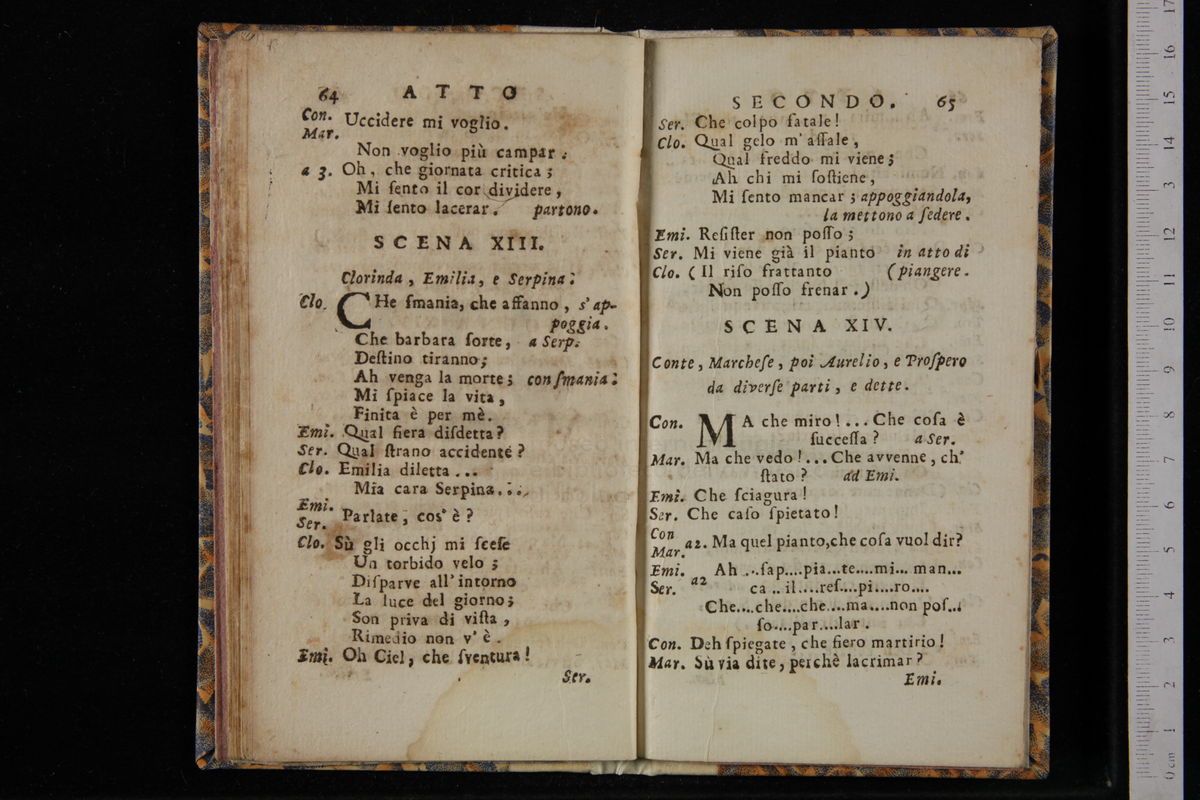 64 ATTO
Con. Uccidere mi voglio.
Mar.
Non voglio più campar.
a 3. Oh, che giornata critica;
Mi ſento il cor dividere,
Mi ſento lacerar. partono.
SCENA XIII.
Clorinda, Emilia, e Serpina.
Clo. CHe ſmania, che affanno, s'ap-
poggia.
Che barbara ſorte, a Serp.
Deſtino tiranno;
Ah venga la morte; con ſmania.
Mi ſpiace la vita,
Finita è per mè.
Emi. Qual fiera diſdetta?
Ser. Qual ſtrano accidente?
Clo. Emilia diletta...
Mia cara Serpina...
Emi. Parlate, cos' è?
Ser.
Clo. Sù gli occhj mi ſceſe
Un torbido velo;
Diſparve all' intorno
La luce del giorno;
Son priva di viſta,
Rimedio non v' è.
Emi. Oh Ciel, che ſventura!
Ser.
SECONDO. 65
Ser. Che colpo fatale!
Clo. Qual gelo m' aſſale,
Qual freddo mi viene;
Ah chi mi ſoſtiene,
Mi ſento mancar; appoggiandola,
la mettono a ſedere.
Emi. Reſiſter non poſſo;
Ser. Mi viene già il pianto in atto di
Clo. (Il riſo frattanto (piangere.
Non poſſo frenar.)
SCENA XIV.
Conte, Marcheſe, poi Aurelio, e Proſpero
da diverſe parti, e dette.
Con. MA che miro!... Che coſa è
ſucceſſa? a Ser.
Mar. Ma che vedo!... Che avvenne, ch'
ſtato? ad Emi.
Emi. Che ſciagura!
Ser. Che caſo ſpietato!
Con
Mar. a2. Ma quel pianto, che coſa vuol dir?
Emi. Ah ...ſap....pia...te....mi... man...
Ser. a2 ca .. il....reſ....pi....ro....
Che....che....che....ma....non poſ...
ſo....par....lar.
Con. Deh ſpiegate, che fiero martirio!
Mar. Sù via dite, perchè lacrimar?
Emi.
17
16
15
14
13
12
11
10
9
8
7
6
5
4
3
2
1
0 cm